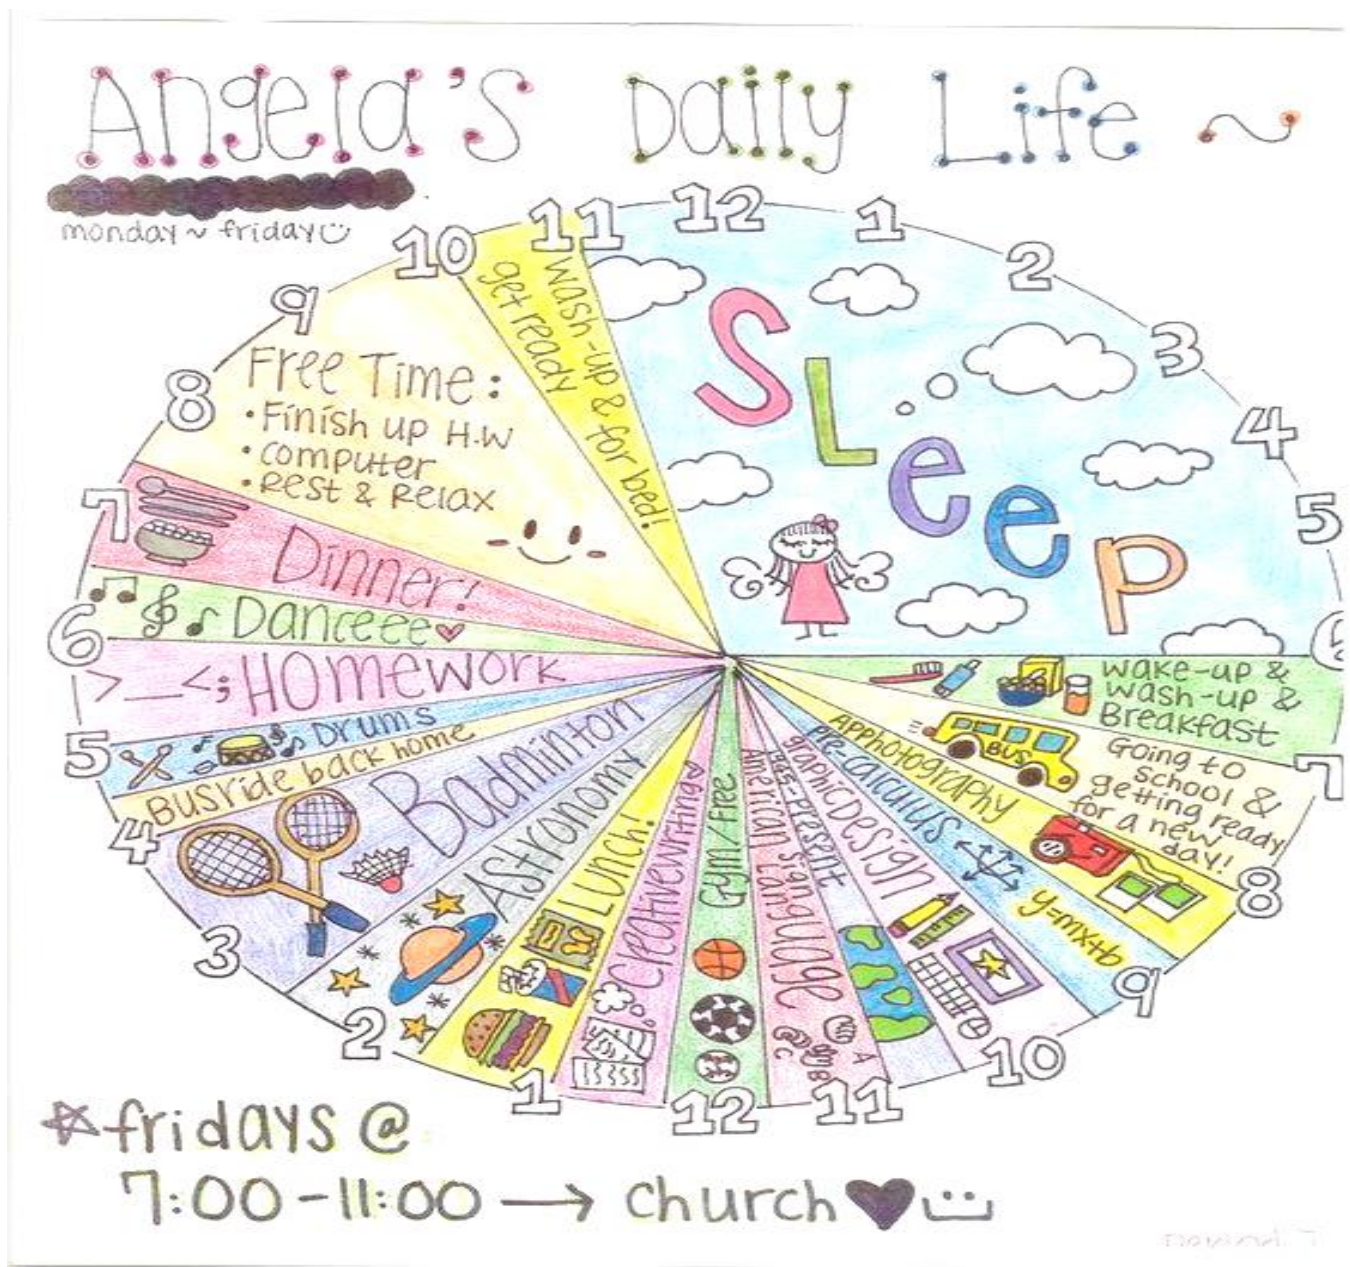 Angela's Daily Life ~
monday ~ friday
12
1
2
3
4
5
6
7
8
9
10
11
12
1
2
3
4
5
6
7
8
9
10
11
SLeep
wake-up &
wash-up &
Breakfast
Going to
school &
getting ready
for a new
day!
BUS
AP Photography
pre-calculus
y=mx+b
graphicDesign
American sign Language
A
B
C
Gym/Free
Creativewriting
Lunch!
Astronomy
Badminton
Busride back home
Drums
>_<; Homework
Danceee
Dinner!
Free Time:
• Finish up H.W
• computer
• Rest & Relax
wash-up &
get ready for bed!
☆ fridays @
7:00-11:00 → church ♥